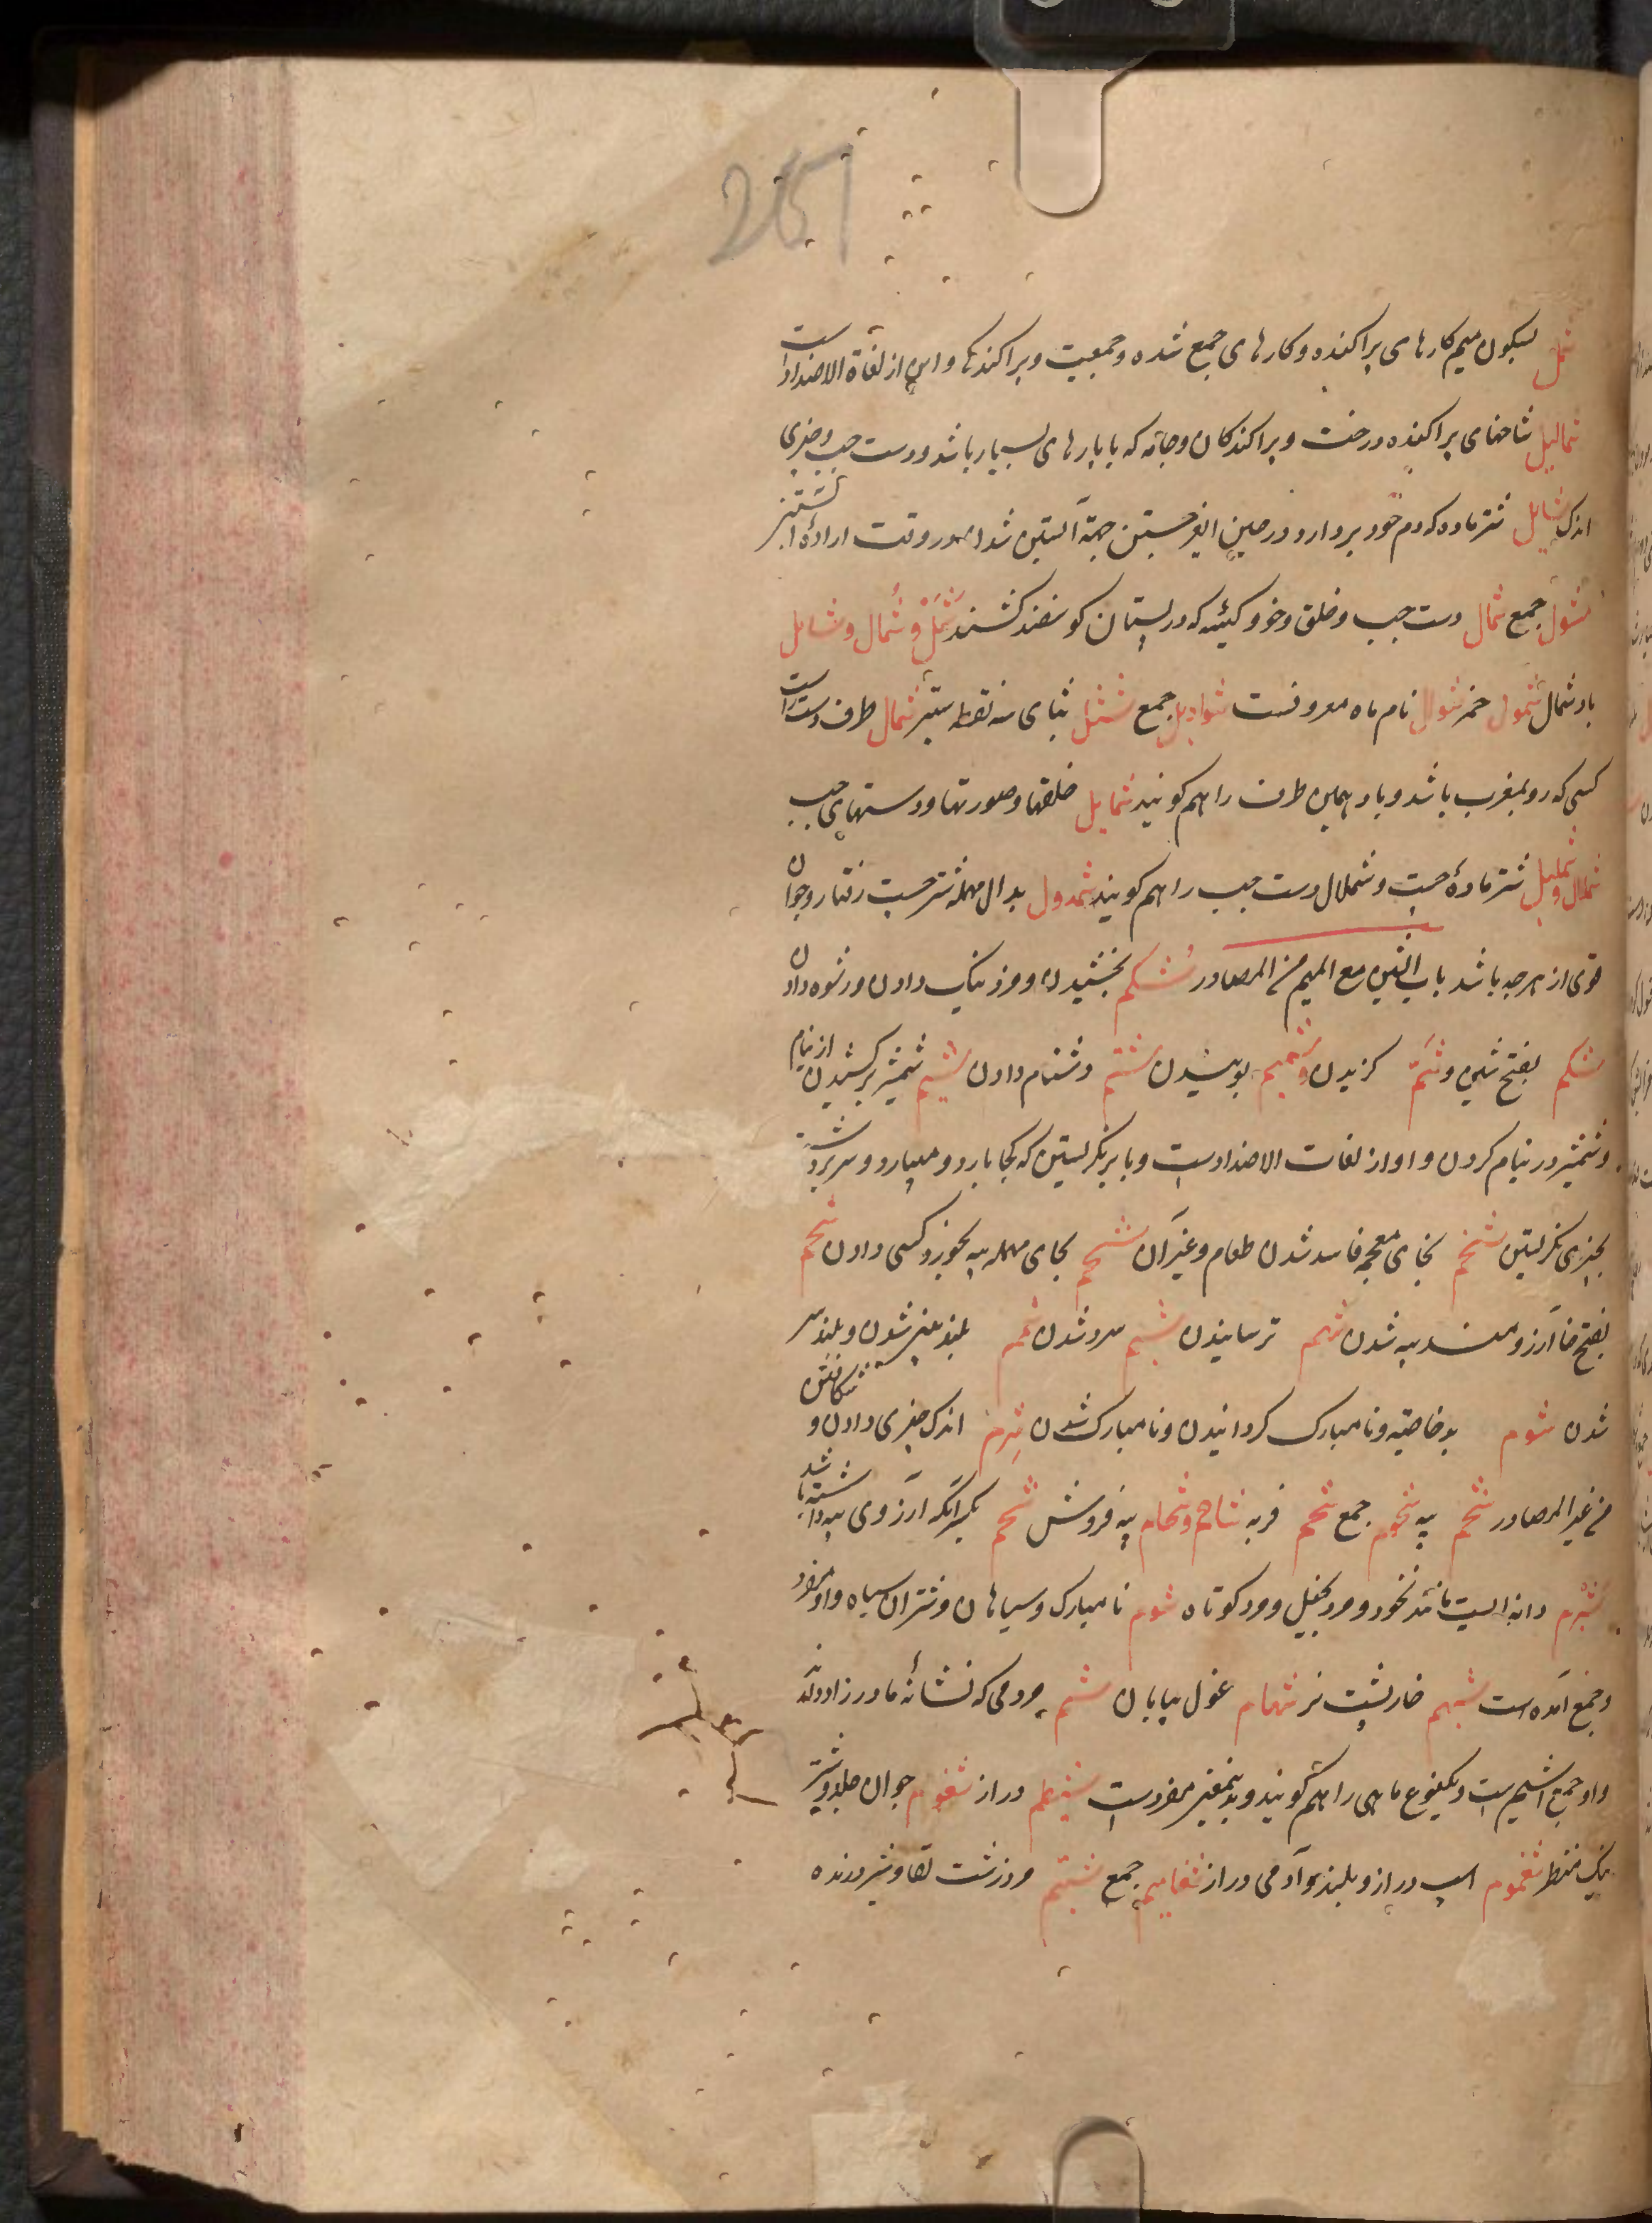 251
شمل بسکون میم کارهای پراکنده و کارهای جمع شده و جمعیت و پراکندکی و این از لغاة الاضداد است
شمالیل شاخهای پراکنده درخت و پراکندکان و جامه که با پارهای بسیار باشد و دست چپ و چیزی
اندک شایل شتر ماده که دم خود بردارد در حین جهة آبستن شدن در وقت اراده
شول جمع شمال دست چپ و خلق و خو و کیسه که در پستان کوسفند کشند شَمَل و شمأل و شامل
باد شمال شمول خمر شوال نام ماه معروفست شواویل جمع شثل بثای سه نقطه ستبر شمال طرف دست راست
کسی که رو بمغرب باشد و باد همین طرف را هم کویند شمایل خلقها و صورتها و دستهای چپ
شملال و شملیل شتر ماده چست و شملال دست چپ را هم کویند شمدول بدال مهمله شتر چست رفتار و جوان
قوی از هر چه باشد باب الشین مع المیم من المصادر شُکم بخشیدن و مزد نیک دادن و رشوه دادن
شکم بفتح شین و شَمّ کزیدن و شمیم بوییدن شتم دشنام دادن شیم شمشیر برکشیدن از نیام
و شمشیر در نیام کردن و او از لغات الاضدادست و بابر نکریستن که کجا بارد و میبارد و سر برداشته
بچیزی نکریستن شخم بخای معجمه فاسد شدن طعام و غیر آن شحم بحای مهمله پیه بخورد کسی دادن شحم
بفتح حا آرزومند پیه شدن شهم ترسانیدن شبم سرد شدن شمم بلند بینی شدن و بلند سر
شدن شوم بد خاصیه و نامبارک کردانیدن و نامبارک شدن شرم اندک چیزی دادن و شکافتن
من غیر المصادر شحم پیه شحوم جمع شحم فربه شاحم و شحام پیه فروش شحم بکسر آنکه آرزوی پیه داشته باشد
شبرم دانه ایست مانند نخود و مرد بخیل و مرد کوتاه شوم نامبارک و سیاهان و شتران سیاه و او مفرد
و جمع آمده است شیهم خارپشت نر شهام غول بیابان شیم مردمی که نشانه مادرزاد دارند
و او جمع اشیم است و یکنوع ماهی را هم کویند و بدینمعنی مفردست شیظم دراز شغموم جوان جلد و شتر
نیک منظر شغموم اسپ دراز و بلند و آدمی دراز شغامیم جمع شتیم مرد زشت لقا و شیر درنده